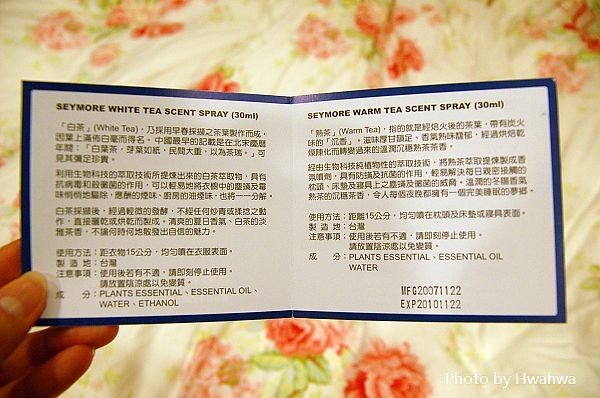 SEYMORE WHITE TEA SCENT SPRAY (30ml)
「白茶」(White Tea)，乃採用早春採擷之茶葉製作而成，
因葉上滿佈白毫而得名。中國最早的記載是在北宋慶曆
年間：「白葉茶，芽葉如紙，民間大重，以為茶瑞。」可
見其彌足珍貴。
利用生物科技的萃取技術所提煉出來的白茶萃取物，具有
抗病毒和殺黴菌的作用，可以輕易地將衣櫥中的塵蟎及霉
味悄悄地驅除，應酬的煙味、廚房的油煙味，也將一一分解。
白茶採擷後，經過輕微的發酵，不經任何炒青或揉捻之動
作，直接曬乾或烘乾而製成。清爽的夏日香氣、白茶的淡
雅茶香，不論何時何地散發出自信的魅力。
使用方法：距衣物15公分，均勻噴在衣服表面。
製 造 地：台灣
注意事項：使用後若有不適，請即刻停止使用。
請放置陰涼處以免變質。
成 分：PLANTS ESSENTIAL、ESSENTIAL OIL、
WATER、ETHANOL
SEYMORE WARM TEA SCENT SPRAY (30ml)
「熟茶」(Warm Tea)，指的就是經焙火後的茶葉，帶有炭火
味的「沉香」。滋味厚甘韻足、香氣熟味馥郁，經過烘焙乾
燥陳化而轉變過來的溫潤沉穩熟茶茶香。
經由生物科技純植物性的萃取技術，將熟茶萃取提煉製成香
氛噴劑，具有防蟎及抗菌的作用，輕易解決每日親密接觸的
枕頭、床墊及寢具上之塵蟎及黴菌的威脅。溫潤的冬陽香氣
熟茶的沉穩茶香，令人每個夜晚都擁有一個完美睡眠的夢鄉。
使用方法：距離15公分，均勻噴在枕頭及床墊或寢具表面。
製 造 地：台灣
注意事項：使用後若有不適，請即刻停止使用。
請放置陰涼處以免變質。
成 分：PLANTS ESSENTIAL、ESSENTIAL OIL
WATER
MFG20071122
EXP20101122
Photo by Hwahwa